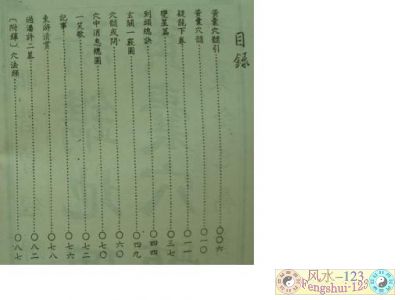 目錄
青囊穴髓引 〇〇六
青囊穴髓 〇一〇
疑龍下卷 〇一一
變星篇 〇三七
到頭總訣 〇四四
玄關一竅圖 〇四九
穴髓或問 〇六〇
穴中消息總圖 〇七〇
一笑歌 〇七二
記事 〇七六
東游清賞 〇七八
過潘許二墓 〇八二
〔附錄〕穴法 〇八七
风水-123
Fengshui-123